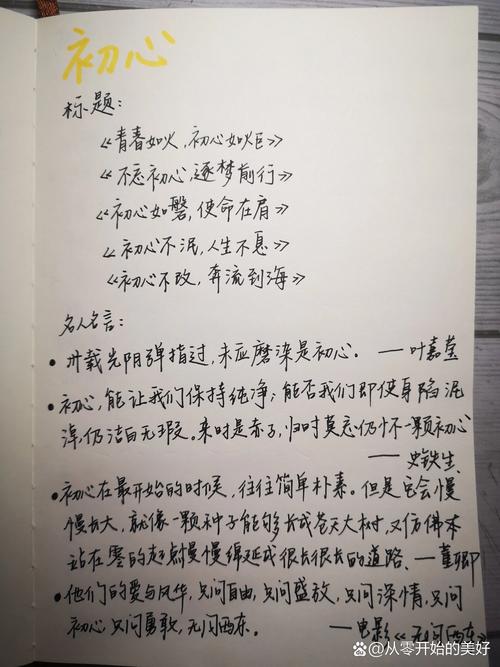 初心
标题：
《青春如火，初心如炬》
《不忘初心，逐梦前行》
《初心如磐，使命在肩》
《初心不泯，人生不息》
《初心不改，奔流到海》
名人名言：
• 卅载光阴弹指过，未应磨染是初心。——叶嘉莹
• 初心，能让我们保持纯净；能否我们即使身陷泥
淖，仍洁白无瑕。来时是赤子，归时莫忘仍怀一颗初心
——史铁生、
• 初心在最开始的时候，往往简单朴素。但是它会慢
慢长大，就像一颗种子能够长成苍天大树，又仿佛本
站在零的起点慢慢绵延成很长很长的道路、——董卿
• 他们的爱与风华，只问自由，只问盛放，只问深情，只问
初心，只问勇敢，无问西东。
——电影《无问西东》
@从零开始的美好